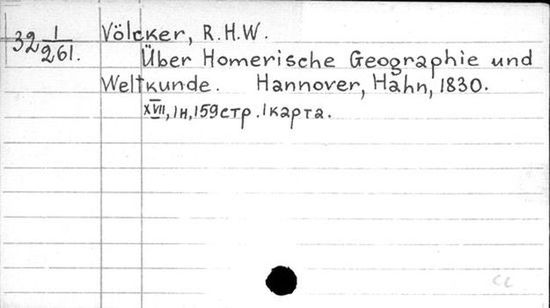 32 1/261. Völcker, R.H.W.
Über Homerische Geographie und
Weltkunde. Hannover, Hahn, 1830.
XVII, 1н, 159стр. 1 карта.